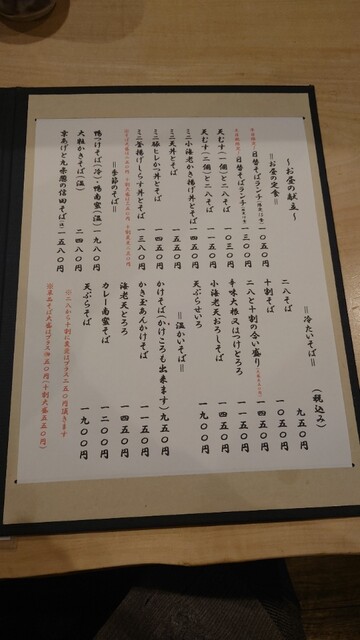 ～お昼の献立～
＝お昼の定食＝
日替そばランチ
一〇五〇円
日替そばランチ
一〇三〇円
天むす(一個)と二八そば
一〇三〇円
天むす(二個)と二八そば
ミニ小海老かき揚げ丼とそば
一四五〇円
ミニ天丼とそば
一五五〇円
ミニ豚ヒレかつ丼とそば
ミニ釜揚げしらす丼とそば
一三八〇円
＝季節のそば＝
鴨つけそば(冷)・鴨南蛮(温)
一九八〇円
大粒かきそば(温)
二四八〇円
京あげと九条葱の信田そば
一五八〇円
(税込み)
＝冷たいそば＝
二八そば
九五〇円
十割そば
一〇五〇円
二八と十割の合い盛り
一四五〇円
辛味大根又はつけとろろ
一一五〇円
小海老天おろしそば
一四五〇円
天ぷらせいろ
一九〇〇円
＝温かいそば＝
かけそば(かけころも出来ます)
九五〇円
かき玉あんかけそば
一一五〇円
海老天とろろ
一四五〇円
カレー南蛮そば
一二〇〇円
天ぷらそば
一九〇〇円
※二八から十割に変更はプラス二五〇円頂きます